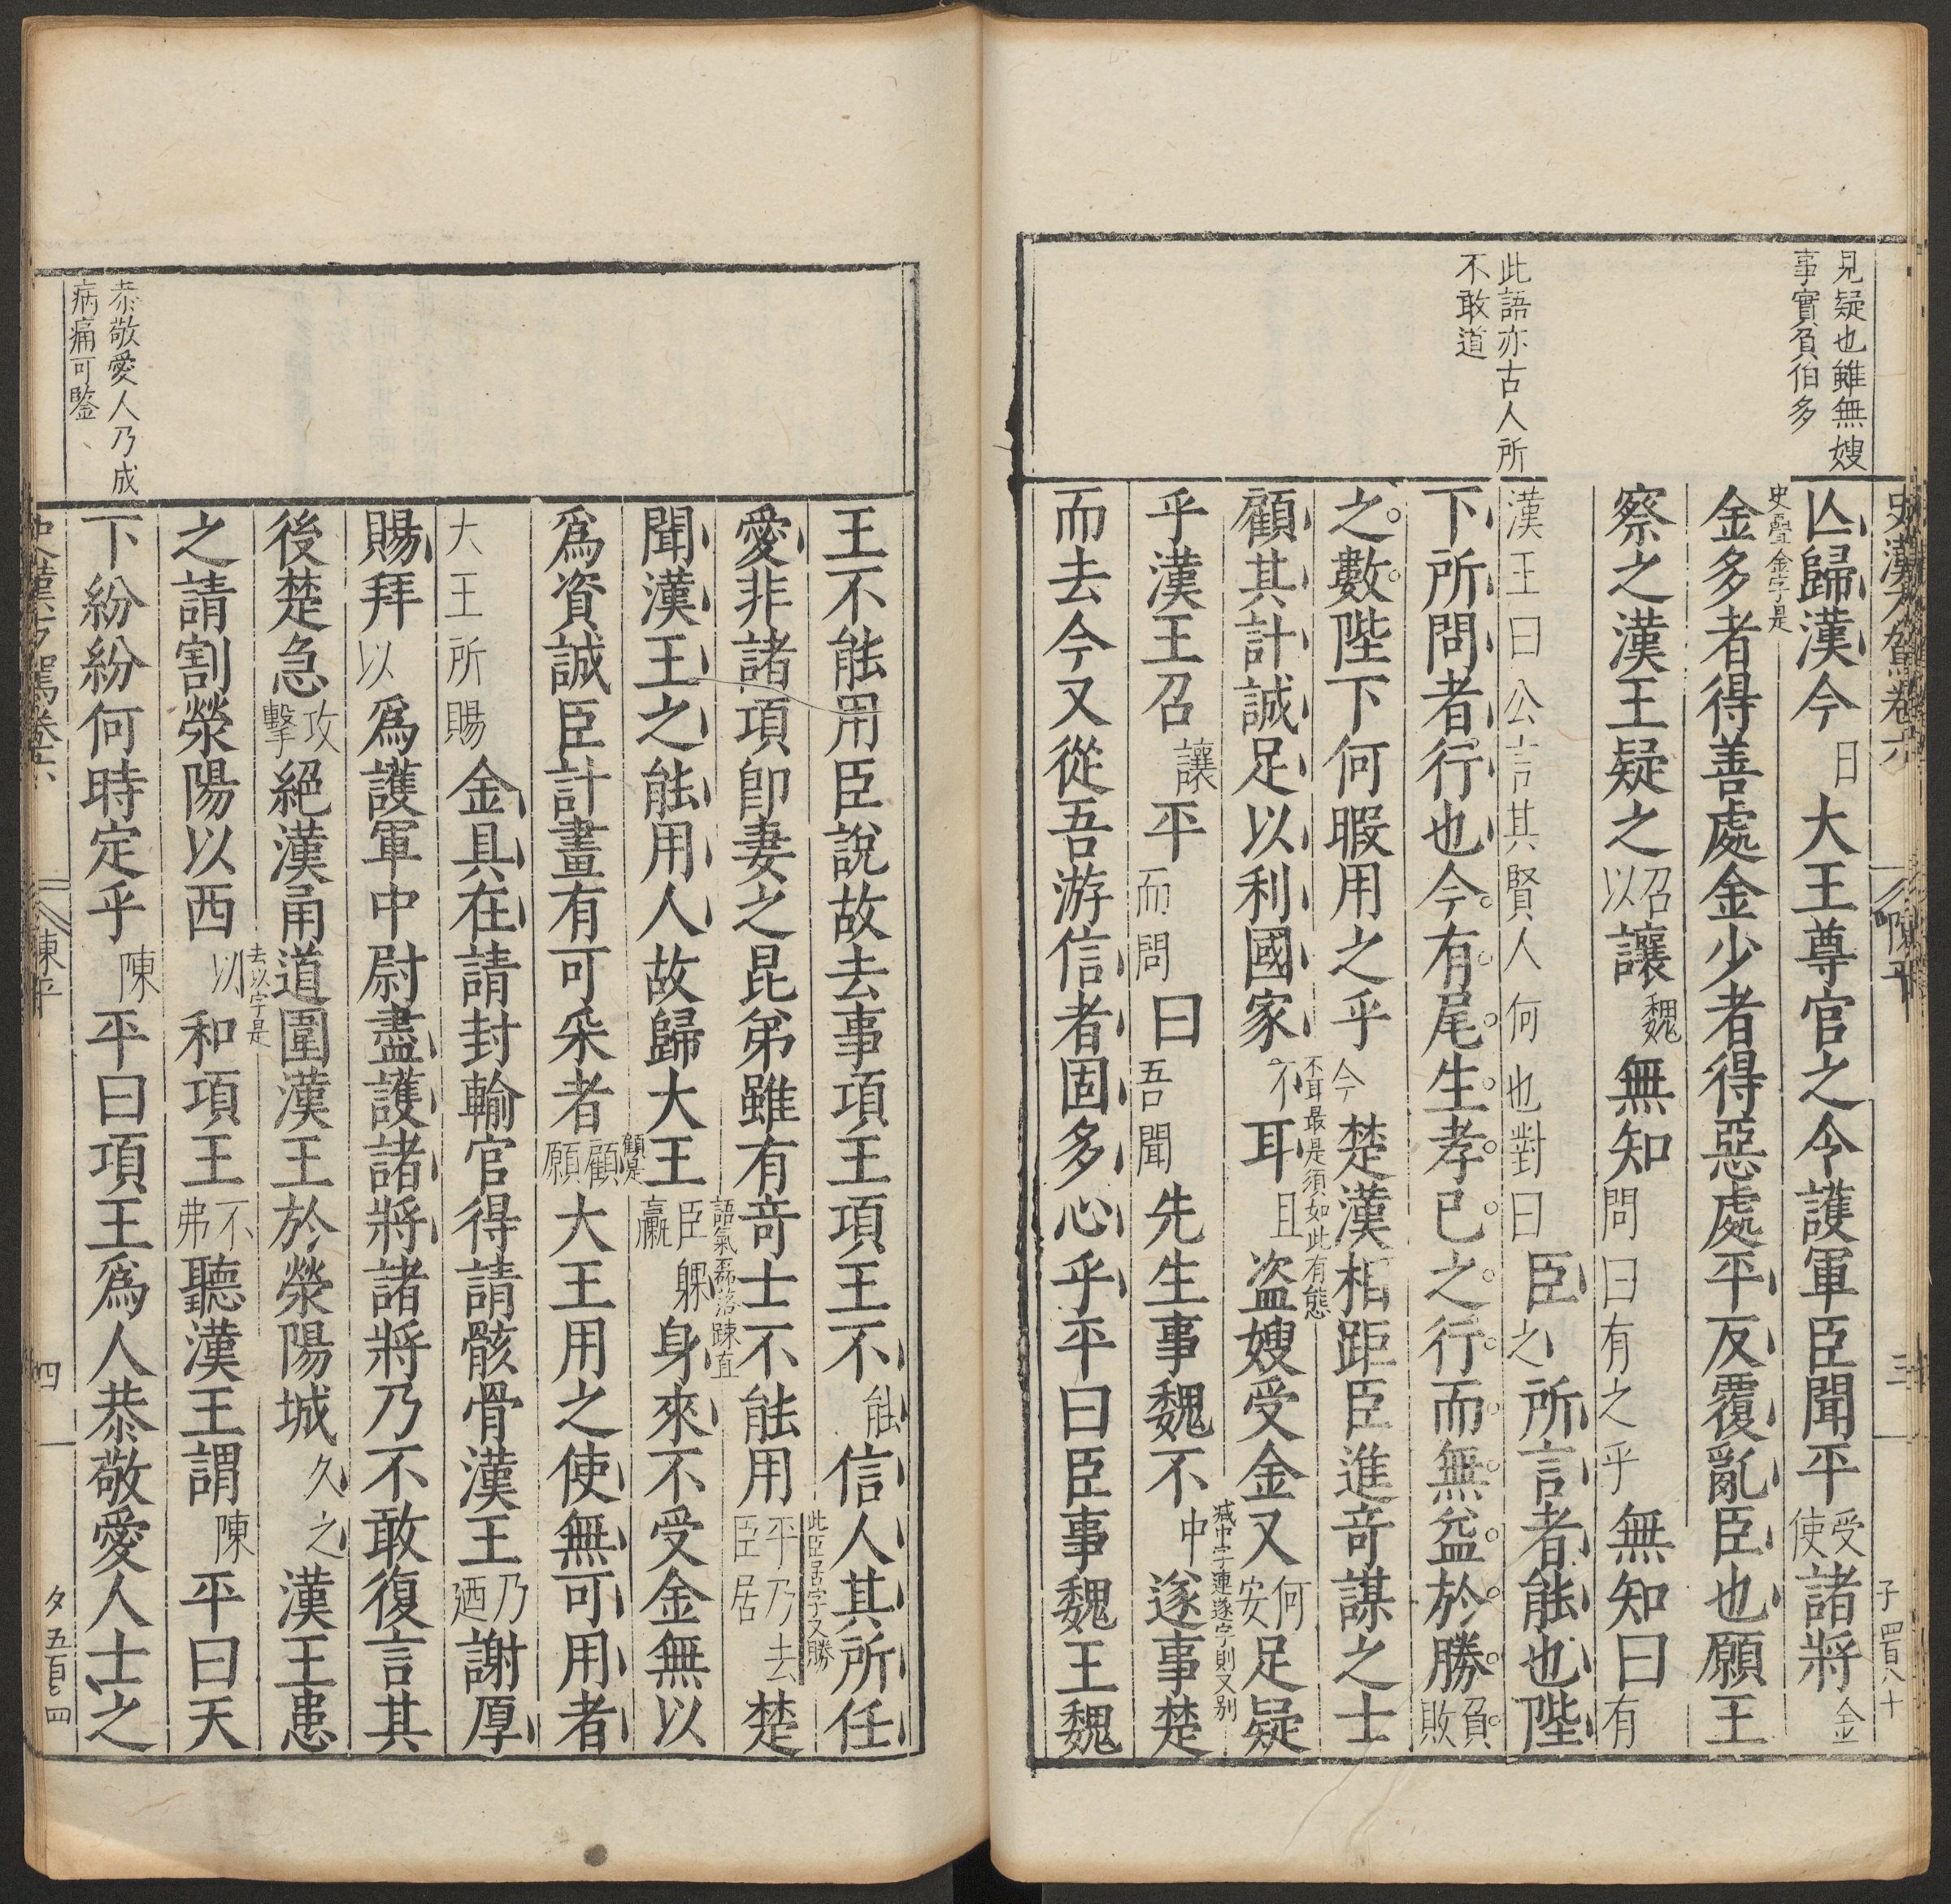 史漢方駕卷六
陳平
三
子四百八十
見疑也雖無嫂
事實負伯多
此語亦古人所
不敢道
亾歸漢今日大王尊官之令護軍臣聞平受使諸將金
史疊金字是
金多者得善處金少者得惡處平反覆亂臣也願王
察之漢王疑之召以讓魏無知問曰有之乎無知曰有
漢王曰公言其賢人何也對曰臣之所言者能也陛
下所問者行也今有尾生孝已之行而無益於勝負敗
之數陛下何暇用之乎今楚漢相距臣進奇謀之士
顧其計誠足以利國家不耳且盗嫂受金又何安足疑
不耳最是須如此有態
乎漢王召讓平而問曰吾聞先生事魏不中遂事楚
減中字連遂字則又別
而去今又從吾游信者固多心乎平曰臣事魏王魏
王不能用臣說故去事項王項王不能信人其所任
愛非諸項卽妻之昆弟雖有奇士不能用平乃去臣居楚
此臣居字又勝
聞漢王之能用人故歸大王臣臝躶身來不受金無以
語氣磊落踈直
爲資誠臣計畫有可采者顧願大王用之使無可用者
顧是
大王所賜金具在請封輸官得請骸骨漢王乃迺謝厚
賜拜以爲護軍中尉盡護諸將諸將乃不敢復言其
後楚急攻擊絕漢甬道圍漢王於滎陽城久之漢王患
之請割滎陽以西以和項王不弗聽漢王謂陳平曰天
去以字是
下紛紛何時定乎陳平曰項王爲人恭敬愛人士之
恭敬愛人乃成
病痛可鍳
史漢方駕卷六
陳平
四
夕五百四